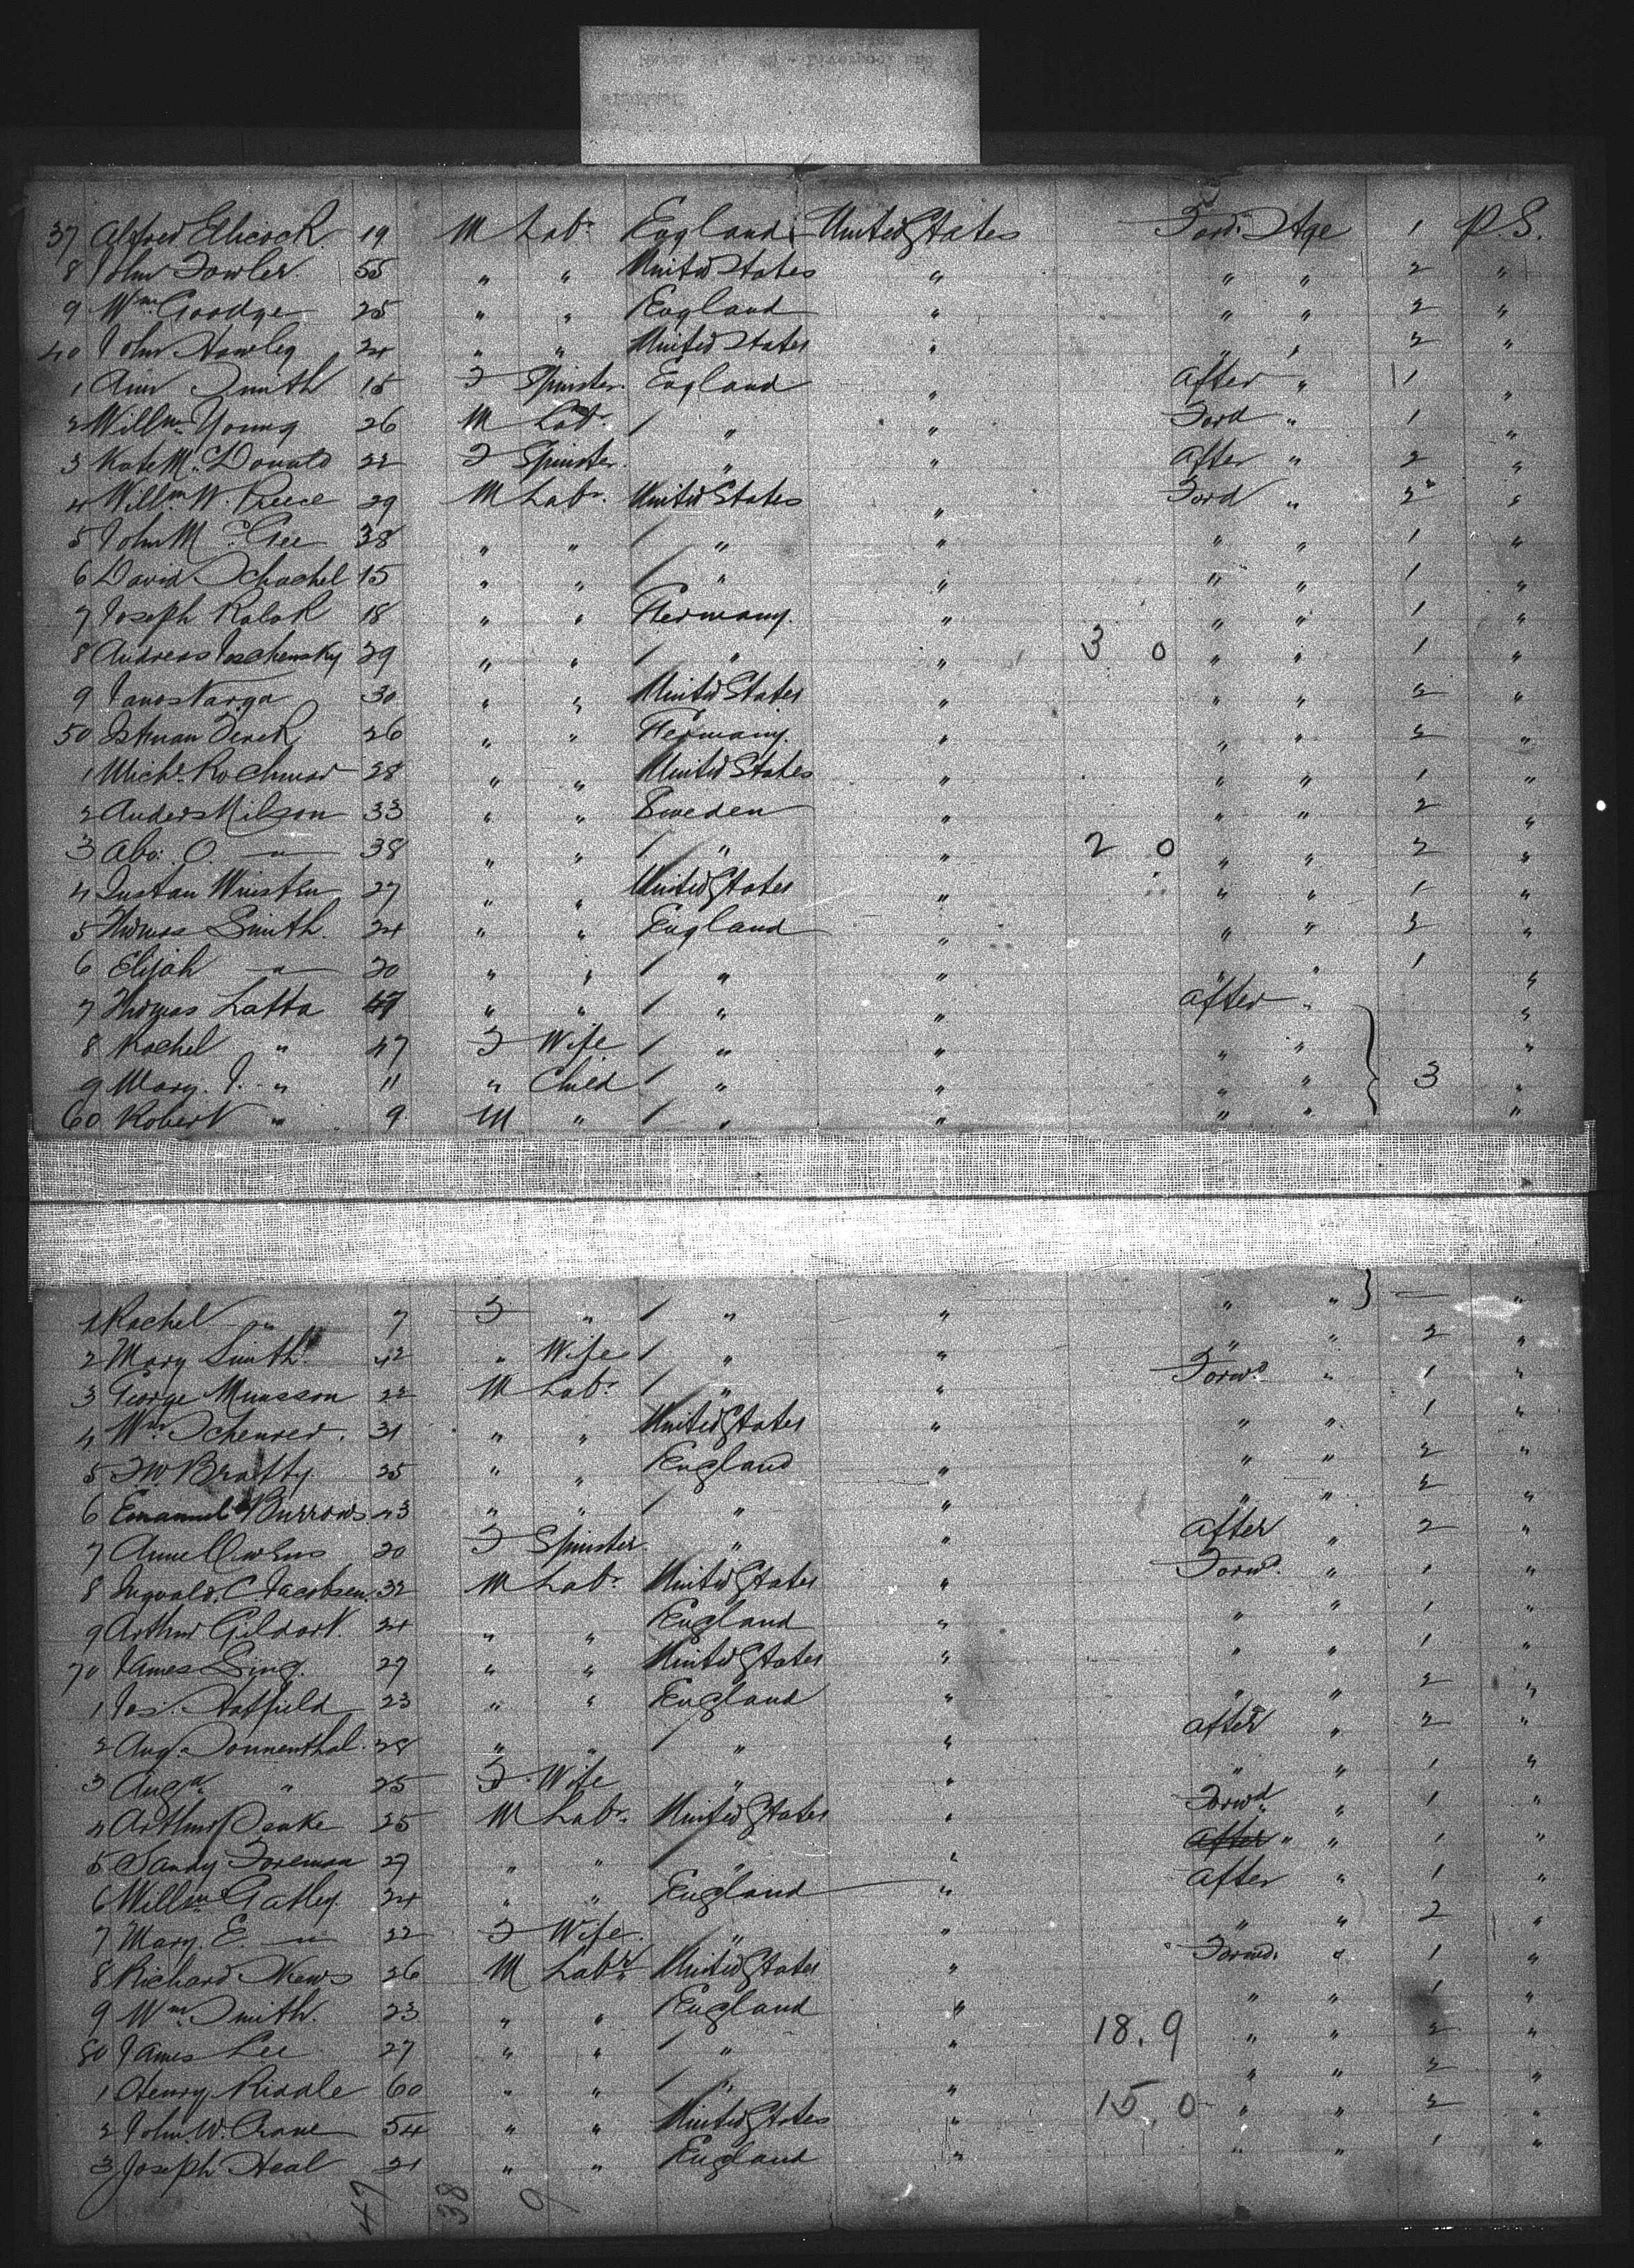 37 Alfred Ellicock 19 M Labr England United States Ford Stge 1 P.S.
8 John Fowler 55 " " United States " " " 2 "
9 Wm Goodge 25 " " England " " " 2 "
40 John Hawley 24 " " United States " " " 2 "
1 Ann Smith 18 F Spinster England " After " 1 "
2 Willm Young 26 M Labr " " Ford " 1 "
3 Kate McDonald 22 F Spinster " " After " 2 "
4 Willm W. Preece 29 M Labr United States " Ford " 2 "
5 John McGee 38 " " " " " " 1 "
6 David Schachel 15 " " " " " " 1 "
7 Joseph Kolok 18 " " Germany " " " 1 "
8 Andreas 29 " " " " 3 0 " " 1 "
9 Janos Varga 30 " " United States " " " 2 "
50 Istvan 26 " " Germany " " " 2 "
1 Michl 28 " " United States " " " 1 "
2 Anders Nilson 33 " " Sweden " " " 2 "
3 Abr. O. " 38 " " " " 2 0 " " 2 "
4 Gustav 27 " " United States " " " 1 "
5 Thomas Smith 24 " " England " " " 2 "
6 Elijah " 20 " " " " " " 1 "
7 Thomas Latta 47 " " " " After " "
8 Rachel " 47 F Wife " " " " "
9 Mary J. " 11 " Child " " " " 3 "
60 Robert " 9 M " " " " " "
1 Rachel " 7 F " " " " " — "
2 Mary Smith 42 " Wife " " " " 2 "
3 George Munsson 22 M Labr " " Forwd " 1 "
4 Wm Schenrer 31 " " United States " " " 1 "
5 F W Bratty 25 " " England " " " 2 "
6 Emanuel Burrows 43 " " " " " " 2 "
7 Anne Owens 20 F Spinster " " After " 2 "
8 Ingvald C. Jacobsen 32 M Labr United States " Forwd " 1 "
9 Arthur Gildart 24 " " England " " " 1 "
70 James Sing 27 " " United States " " " 1 "
1 Jos. Hatfield 23 " " England " " " 2 "
2 Aug. Sonnenthal 28 " " " " After " 2 "
3 Auga " 25 F Wife " " " " 1 "
4 Arthur Peake 25 M Labr United States " Forwd " 1 "
5 Sandy Foreman 27 " " " " After " " 1 "
6 Willm Gatley 24 " " England " After " 1 "
7 Mary E. " 22 F Wife " " " " 2 "
8 Richard News 26 M Labr United States " Forwd " 1 "
9 Wm Smith 23 " " England " " " 1 "
80 James Lee 27 " " " " 18.9 " " 2 "
1 Henry Riddle 60 " " " " " " 2 "
2 John W. Crane 54 " " United States " 15.0 " " 2 "
3 Joseph Heal 21 " " England " " " 1 "
47 38 9